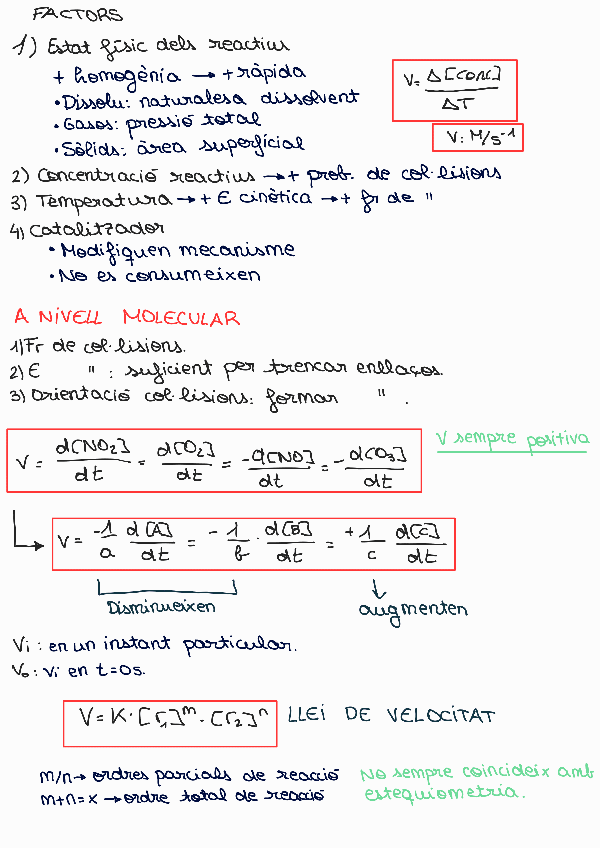 FACTORS
1) Estat físic dels reactius
+ homogènia → + ràpida
• Dissolu: naturalesa dissolvent
• Gasos: pressió total
• Sòlids: àrea superficial
V = Δ[conc] / ΔT
V: M/s⁻¹
2) Concentració reactius → + prob. de col·lisions
3) Temperatura → + E cinètica → + fr de "
4) Catalitzador
• Modifiquen mecanisme
• No es consumeixen
A NIVELL MOLECULAR
1) Fr de col·lisions.
2) E " : suficient per trencar enllaços.
3) Orientació col·lisions: formar " .
V = d[NO₂]/dt = d[O₂]/dt = -d[NO]/dt = -d[O₃]/dt
V sempre positiva
V = -1/a d[A]/dt = - 1/b · d[B]/dt = +1/c d[C]/dt
Disminueixen
augmenten
Vi : en un instant particular.
V₀ : Vi en t=0s.
V = K · [r₁]ᵐ · [r₂]ⁿ
LLEI DE VELOCITAT
m/n → ordres parcials de reacció
m+n=x → ordre total de reacció
No sempre coincideix amb
estequiometria.